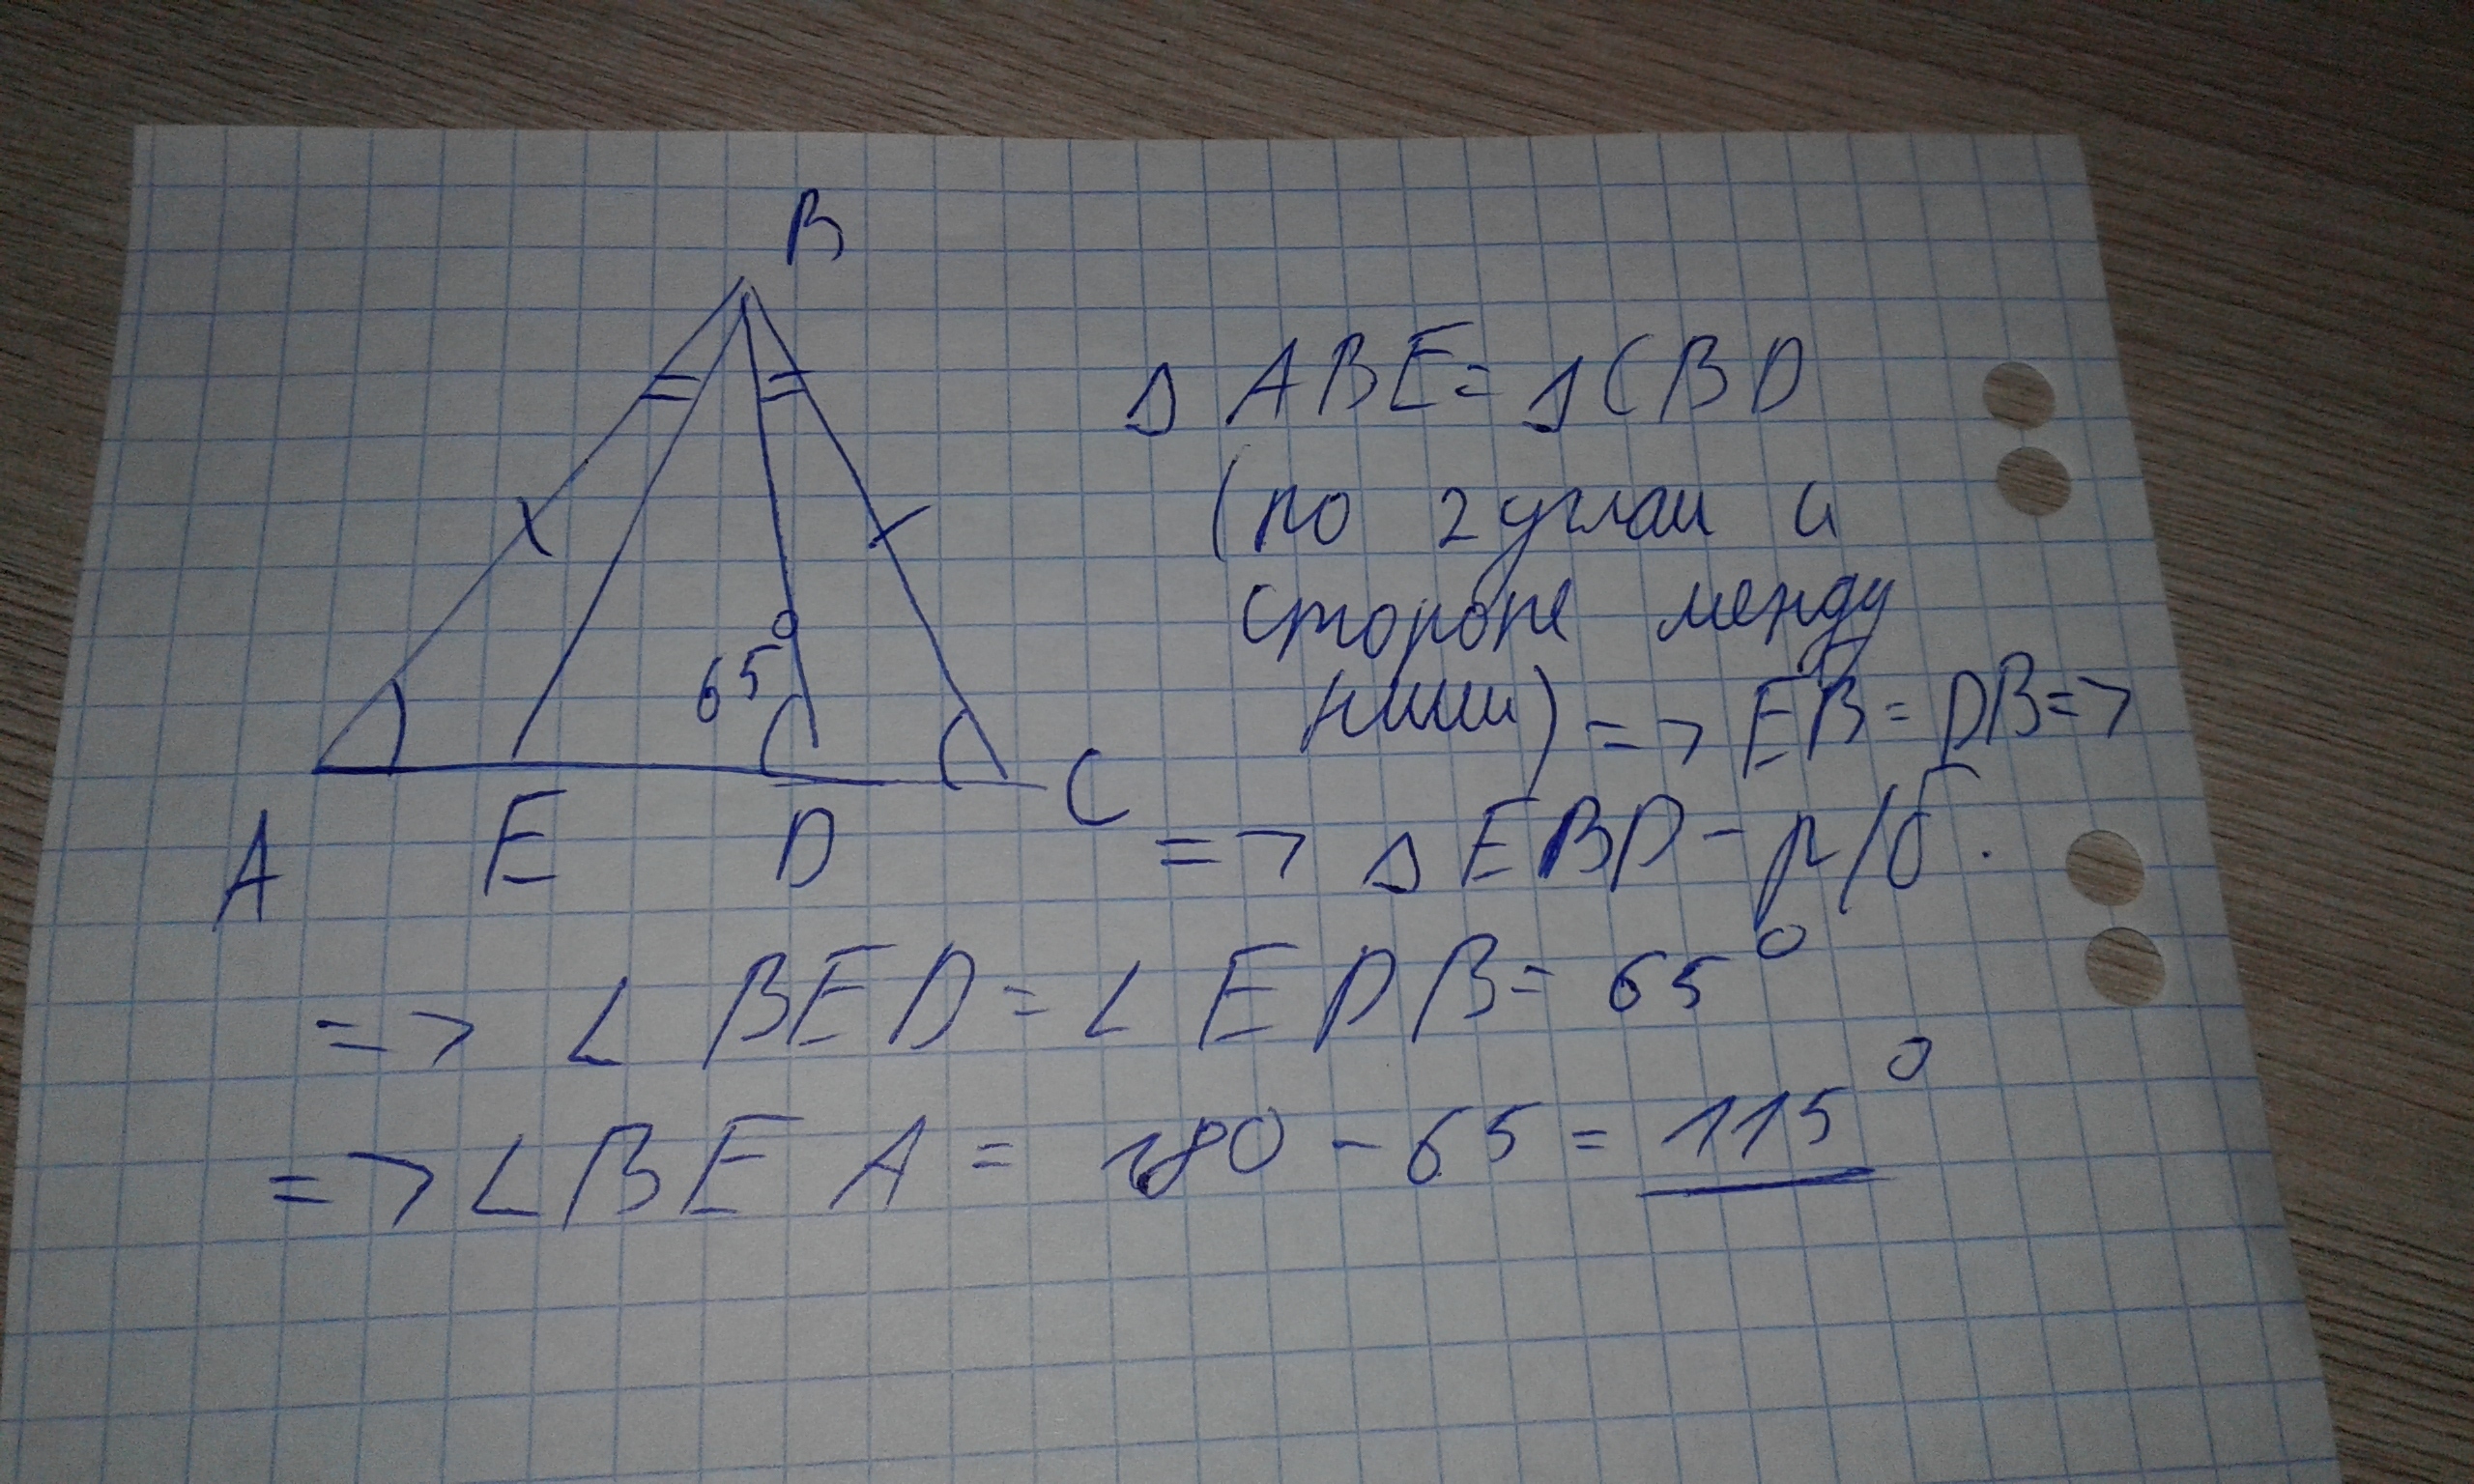 B
△ ABE = △ CBD
(по 2 углам и
стороне между
ними) => EB = DB =>
65°
A E D C
=> △ EBD - р/б.
=> ∠ BED = ∠ EDB = 65°
=> ∠ BEA = 180 - 65 = 115°